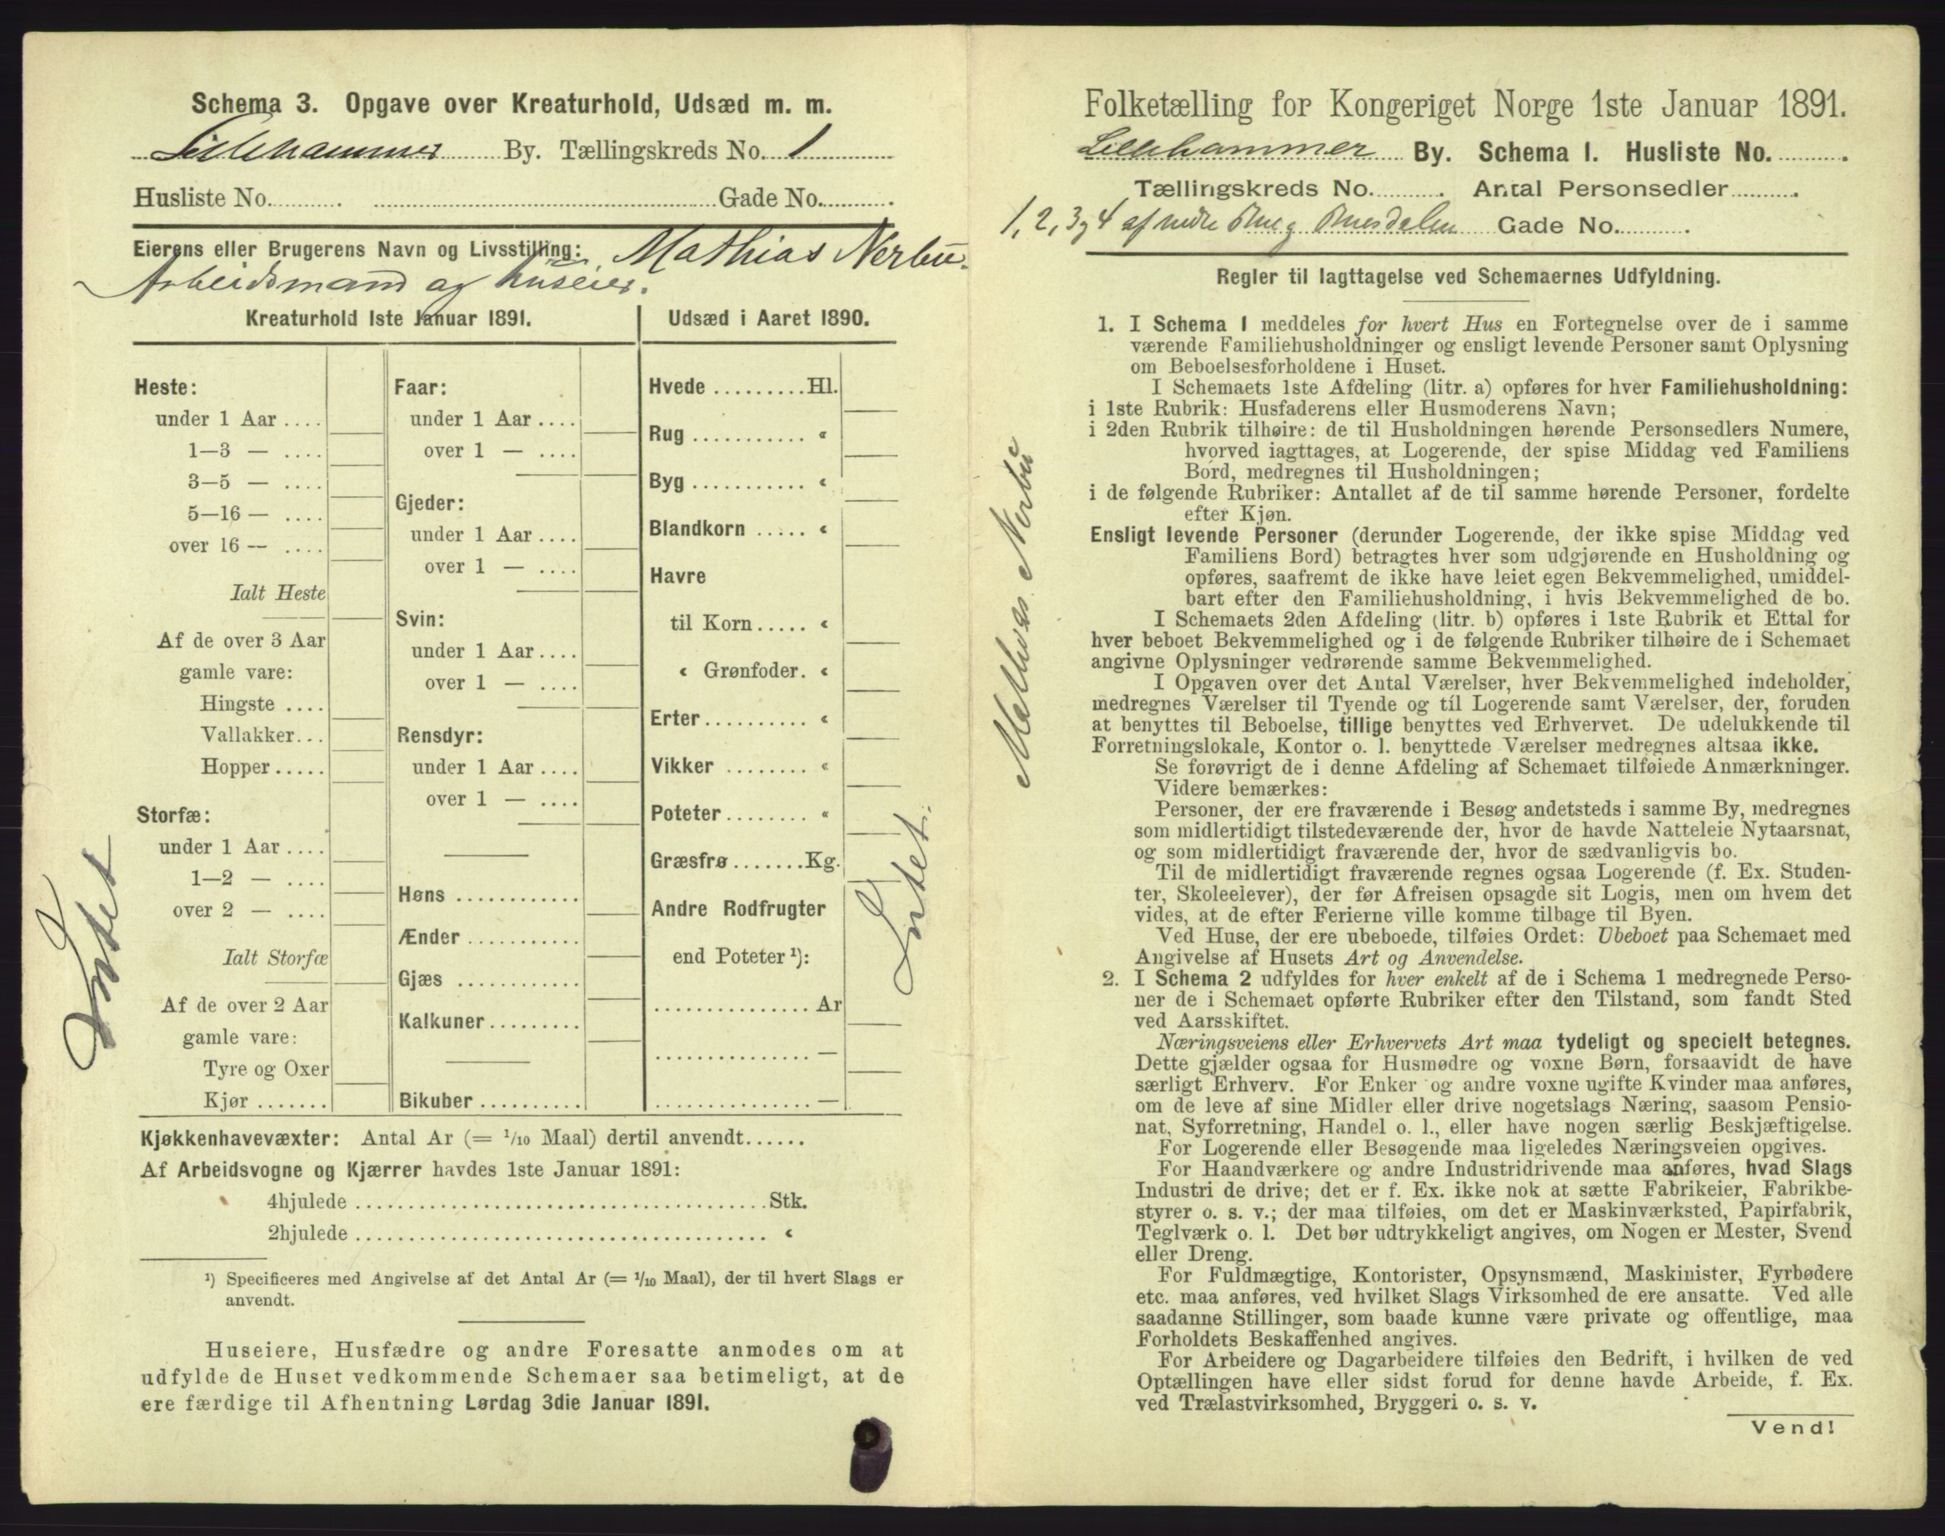 Schema 3. Opgave over Kreaturhold, Udsæd m. m.
Lillehammer By. Tællingskreds No. 1
Husliste No. Gade No.
Eierens eller Brugerens Navn og Livsstilling: Mathias Nerbu.
Arbeidsmand og huseier.
Kreaturhold 1ste Januar 1891.
Heste:
under 1 Aar ....
1—3 — ....
3—5 — ....
5—16 — ....
over 16 — ....
Ialt Heste
Af de over 3 Aar
gamle vare:
Hingste ....
Vallakker...
Hopper.....
Storfæ:
under 1 Aar ....
1—2 — ....
over 2 — ....
Ialt Storfæ
Af de over 2 Aar
gamle vare:
Tyre og Oxer
Kjør .......
Intet
Faar:
under 1 Aar ....
over 1 — ....
Gjeder:
under 1 Aar ....
over 1 — ....
Svin:
under 1 Aar ....
over 1 — ....
Rensdyr:
under 1 Aar ....
over 1 — ....
Høns ............
Ænder ...........
Gjæs ............
Kalkuner.........
Bikuber ..........
Udsæd i Aaret 1890.
Hvede .........Hl.
Rug ........... «
Byg ........... «
Blandkorn ..... «
Havre
til Korn..... «
« Grønfoder. «
Erter.......... «
Vikker ........ «
Poteter........ «
Græsfrø .......Kg.
Andre Rodfrugter
end Poteter ¹):
............... Ar
............... —
............... —
Intet.
Kjøkkenhavevæxter: Antal Ar (= 1/10 Maal) dertil anvendt......
Af Arbeidsvogne og Kjærrer havdes 1ste Januar 1891:
4hjulede .......................................Stk.
2hjulede ....................................... «
¹) Specificeres med Angivelse af det Antal Ar (= 1/10 Maal), der til hvert Slags er
anvendt.
Huseiere, Husfædre og andre Foresatte anmodes om at
udfylde de Huset vedkommende Schemaer saa betimeligt, at de
ere færdige til Afhentning Lørdag 3die Januar 1891.
Folketælling for Kongeriget Norge 1ste Januar 1891.
Lillehammer By. Schema I. Husliste No.
Tællingskreds No. Antal Personsedler
1, 2, 3 og 4 af nedre Gade No.
Mathias Nerbu
Regler til Iagttagelse ved Schemaernes Udfyldning.
1. I Schema 1 meddeles for hvert Hus en Fortegnelse over de i samme
værende Familiehusholdninger og ensligt levende Personer samt Oplysning
om Beboelsesforholdene i Huset.
I Schemaets 1ste Afdeling (litr. a) opføres for hver Familiehusholdning:
i 1ste Rubrik: Husfaderens eller Husmoderens Navn;
i 2den Rubrik tilhøire: de til Husholdningen hørende Personsedlers Numere,
hvorved iagttages, at Logerende, der spise Middag ved Familiens
Bord, medregnes til Husholdningen;
i de følgende Rubriker: Antallet af de til samme hørende Personer, fordelte
efter Kjøn.
Ensligt levende Personer (derunder Logerende, der ikke spise Middag ved
Familiens Bord) betragtes hver som udgjørende en Husholdning og
opføres, saafremt de ikke have leiet egen Bekvemmelighed, umiddel-
bart efter den Familiehusholdning, i hvis Bekvemmelighed de bo.
I Schemaets 2den Afdeling (litr. b) opføres i 1ste Rubrik et Ettal for
hver beboet Bekvemmelighed og i de følgende Rubriker tilhøire de i Schemaet
angivne Oplysninger vedrørende samme Bekvemmelighed.
I Opgaven over det Antal Værelser, hver Bekvemmelighed indeholder,
medregnes Værelser til Tyende og til Logerende samt Værelser, der, foruden
at benyttes til Beboelse, tillige benyttes ved Erhvervet. De udelukkende til
Forretningslokale, Kontor o. l. benyttede Værelser medregnes altsaa ikke.
Se forøvrigt de i denne Afdeling af Schemaet tilføiede Anmærkninger.
Videre bemærkes:
Personer, der ere fraværende i Besøg andetsteds i samme By, medregnes
som midlertidigt tilstedeværende der, hvor de havde Natteleie Nytaarsnat,
og som midlertidigt fraværende der, hvor de sædvanligvis bo.
Til de midlertidigt fraværende regnes ogsaa Logerende (f. Ex. Studen-
ter, Skoleelever), der før Afreisen opsagde sit Logis, men om hvem det
vides, at de efter Ferierne ville komme tilbage til Byen.
Ved Huse, der ere ubeboede, tilføies Ordet: Ubeboet paa Schemaet med
Angivelse af Husets Art og Anvendelse.
2. I Schema 2 udfyldes for hver enkelt af de i Schema 1 medregnede Perso-
ner de i Schemaet opførte Rubriker efter den Tilstand, som fandt Sted
ved Aarsskiftet.
Næringsveiens eller Erhvervets Art maa tydeligt og specielt betegnes.
Dette gjælder ogsaa for Husmødre og voxne Børn, forsaavidt de have
særligt Erhverv. For Enker og andre voxne ugifte Kvinder maa anføres,
om de leve af sine Midler eller drive nogetslags Næring, saasom Pensio-
nat, Syforretning, Handel o. l., eller have nogen særlig Beskjæftigelse.
For Logerende eller Besøgende maa ligeledes Næringsveien opgives.
For Haandværkere og andre Industridrivende maa anføres, hvad Slags
Industri de drive; det er f. Ex. ikke nok at sætte Fabrikeier, Fabrikbe-
styrer o. s. v.; der maa tilføies, om det er Maskinværksted, Papirfabrik,
Teglværk o. l. Det bør udtrykkeligt angives, om Nogen er Mester, Svend
eller Dreng.
For Fuldmægtige, Kontorister, Opsynsmænd, Maskinister, Fyrbødere
etc. maa anføres, ved hvilket Slags Virksomhed de ere ansatte. Ved alle
saadanne Stillinger, som baade kunne være private og offentlige, maa
Forholdets Beskaffenhed angives.
For Arbeidere og Dagarbeidere tilføies den Bedrift, i hvilken de ved
Optællingen have eller sidst forud for denne havde Arbeide, f. Ex.
ved Trælastvirksomhed, Bryggeri o. s. v.
Vend!